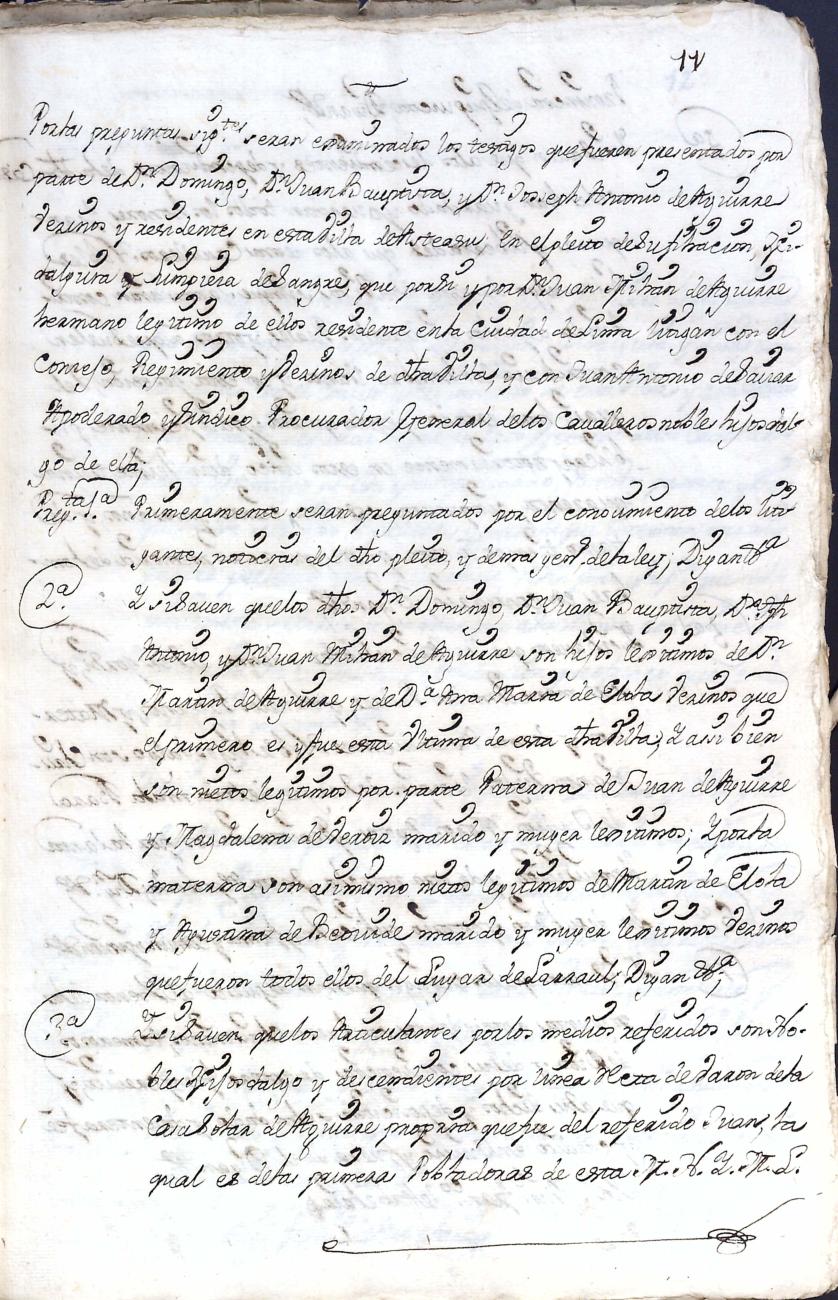 11
†
Por las preguntas sig.tes seran examinados los testigos que fueren presentados por
parte de Dn. Domingo, Dn. Juan Bauptista, y Dn. Joseph Antonio de Aguirre
Vezinos y residentes en esta Villa de Asteasu, en el pleito de su filiacion, Hi-
dalguia y Limpieza de Sangre, que por si y por Dn. Juan Mihan de Aguirre
hermano legitimo de ellos residente en la Ciudad de Lima litigan con el
Consejo, Regimiento y Vezinos de dha Villa, y con Juan Antonio de
Apoderado y Sindico Procurador General delos Cavalleros nobles hijos dal-
go de ella;
Preg.ta 1.a Primeramente seran preguntados por el conocimiento delos liti-
gantes, noticias del dho pleito, y demas gen.s dela ley; Digan &a
2.a Y si Saven quelos dhos. Dn. Domingo, Dn. Juan Bauptista, Dn. Jph
Antonio, y Dn. Juan Mihan de Aguirre son hijos lexitimos de Dn.
Martin de Aguirre y de Da. Ana Maria de Elola Vezinos que
el primero es y fue esta Vltima de esta dha Villa; Y assi bien
son nietos legitimos por parte Paterna de Juan de Aguirre
y Magdalena de marido y muger lexitimos; Y por la
materna son asimismo nietos legitimos de Martin de Elola
y Agustina de Beovide marido y muger lexitimos Vezinos
que fueron todos ellos del Lugar de Larraul; Digan &a;
3.a Y si Saven quelos Articulantes por los medios referidos son No-
bles Hijos dalgo y descendientes por linea Recta de Varon dela
Casa Solar de Aguirre propria que fue del referido Juan, la
qual es delas primeras Pobladoras de esta M. N. Y. M. L.